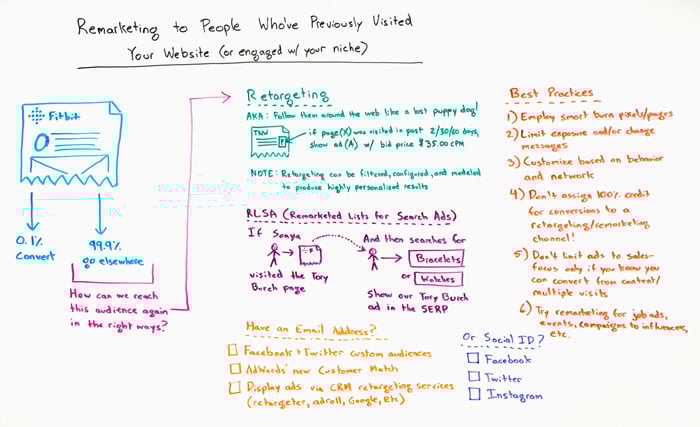 Remarketing to People Who've Previously Visited
Your Website (or engaged w/ your niche)
Fitbit
0.1%
Convert
99.9%
go elsewhere
How can we reach
this audience again
in the right ways?
Retargeting
AKA: Follow them around the web like a lost puppy dog!
TNW
if page(X) was visited in past 2/30/60 days,
show ad(A) w/ bid price $35.00 CPM
NOTE: Retargeting can be filtered, configured, and modeled
to produce highly personalized results
RLSA (Remarketed Lists for Search Ads)
If Sonya
visited the Tory
Burch page
And then searches for
Bracelets
or Watches
Show our Tory Burch
ad in the SERP
Have an Email Address?
Facebook + Twitter custom audiences
AdWords' new Customer Match
Display ads via CRM retargeting services
(retargeter, adroll, Google, Etc)
Or Social ID?
Facebook
Twitter
Instagram
Best Practices
1) Employ smart burn pixels/pages
2) Limit exposure and/or change
messages
3) Customize based on behavior
and network
4) Don't assign 100% credit
for conversions to a
retargeting/remarketing
channel!
5) Don't limit ads to sales-
focus only if you know you
can convert from content/
multiple visits
6) Try remarketing for job ads,
events, campaigns to influencers,
etc.